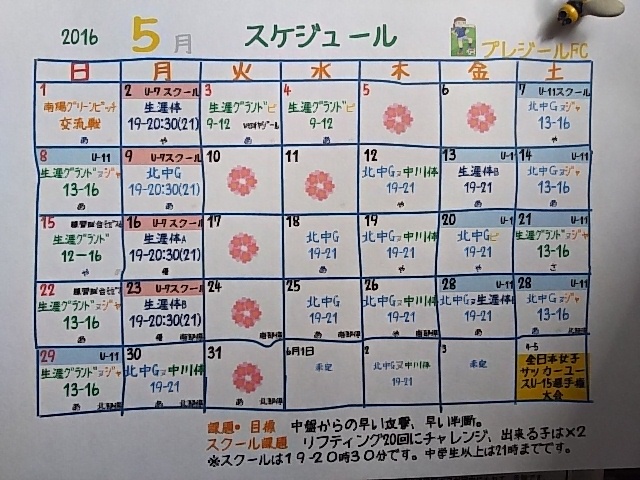 2016 5月 スケジュール プレジールFC
日 月 火 水 木 金 土
1
南陽グリーンピッチ
交流戦
あ
2 U-7スクール
生涯体
19-20:30(21)
や
3
生涯グランド
9-12
あ
4
生涯グランド
9-12
あ
5
6
7 U-11スクール
北中G
13-16
や
8 U-11
生涯グランド
13-16
あ
9 U-7スクール
北中G
19-20:30(21)
あ
10
11
12
北中G 中川体
19-21
や
13
生涯体B
19-21
あ
14
北中G
13-16
あ
15
生涯グランド
12-16
や
16 U-7スクール
生涯体A
19-20:30(21)
17
18
北中G
19-21
あ
19
北中G 中川体
19-21
や
20
北中G
19-21
や
21 U-11
生涯グランド
13-16
さ
22
生涯グランド
13-16
あ
23 U-7スクール
生涯体B
19-20:30(21)
24
25
北中G
19-21
あ
26
北中G 中川体
19-21
28 U-11
北中G 生涯体
19-21
あ
28 U-11
北中G
13-16
あ
29 U-11
生涯グランド
13-16
あ
30
北中G 中川体
19-21
あ
31
あ
6月1日
未定
2
北中G 中川体
19-21
3
未定
4-5
全日本女子
サッカーユー
スU-15選手権
大会
課題・目標 中盤からの早い攻撃、早い判断。
スクール課題 リフティング20回にチャレンジ、出来る子は×2
※スクールは19-20時30分です。中学生以上は21時までです。